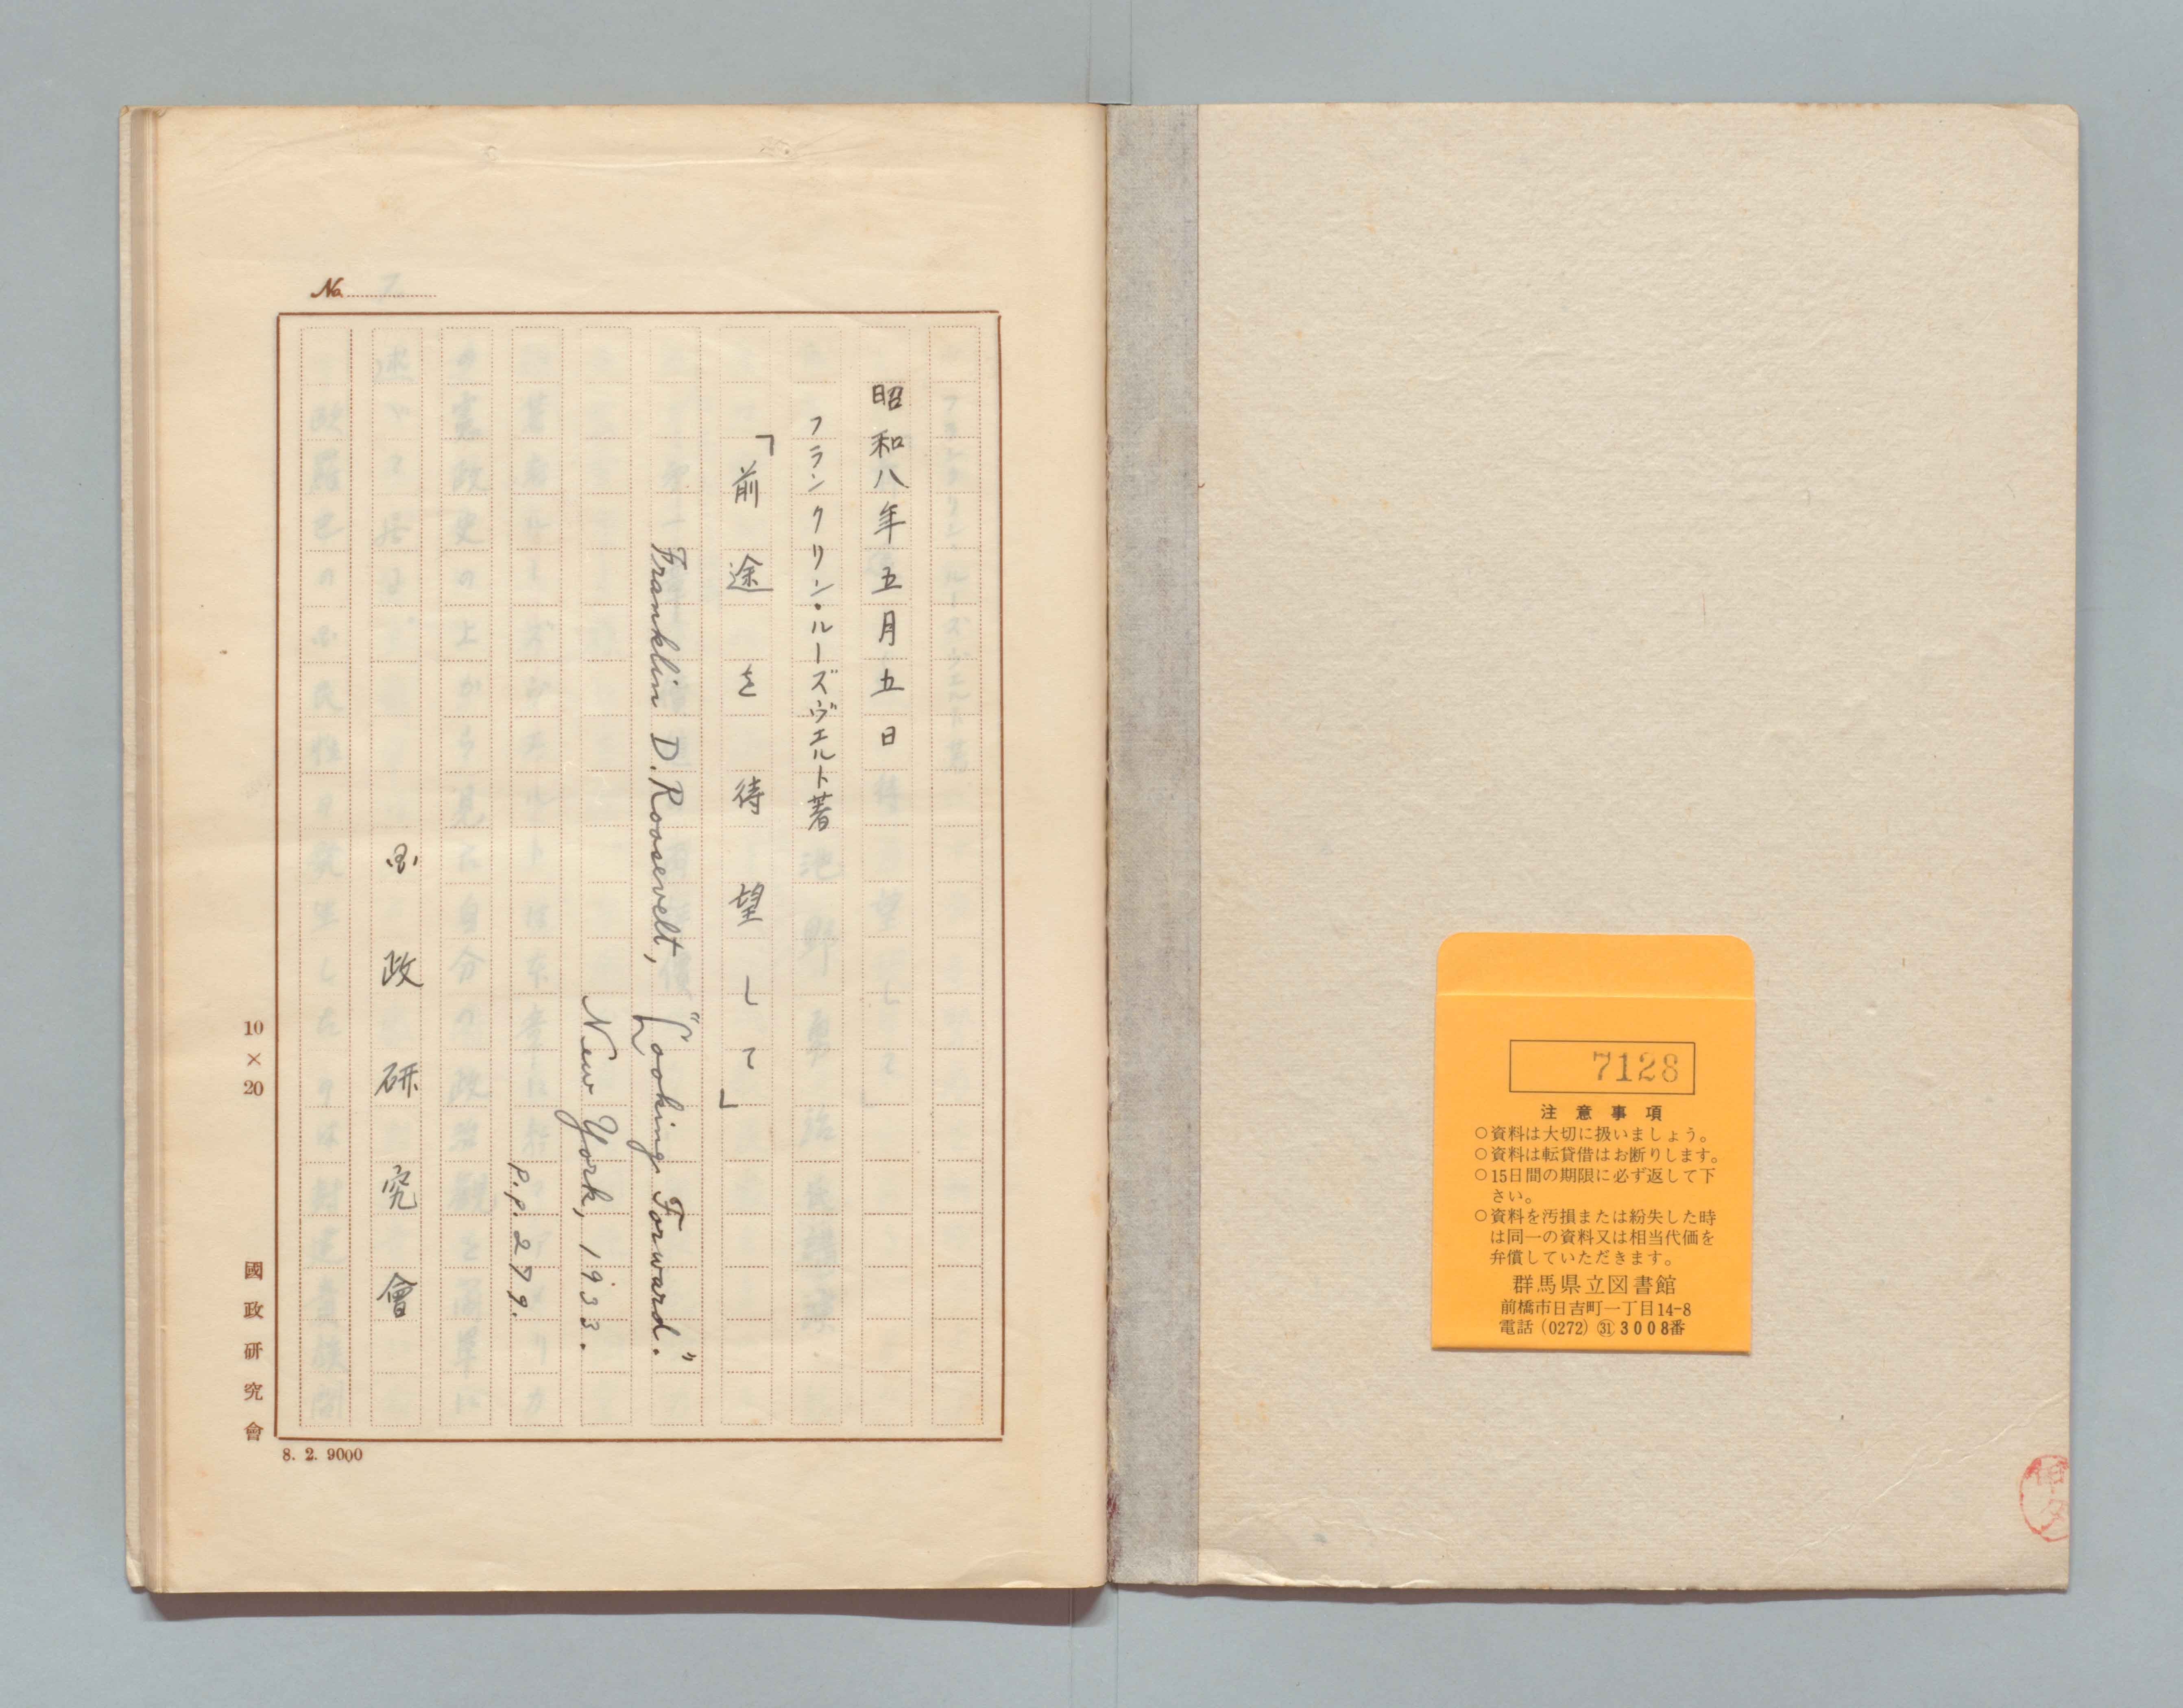 7128
注意事項
○資料は大切に扱いましょう。
○資料は転貸借はお断りします。
○15日間の期限に必ず返して下
さい。
○資料を汚損または紛失した時
は同一の資料又は相当代価を
弁償していただきます。
群馬県立図書館
前橋市日吉町一丁目14-8
電話(0272)㉛3008番
No.
昭和八年五月五日
フランクリン・ルーズヴェルト著
「前途を待望して」
Franklin D. Roosevelt, "Looking Forward."
New York, 1933.
P.P. 279.
国政研究會
10×20
國政研究會
8. 2. 9000